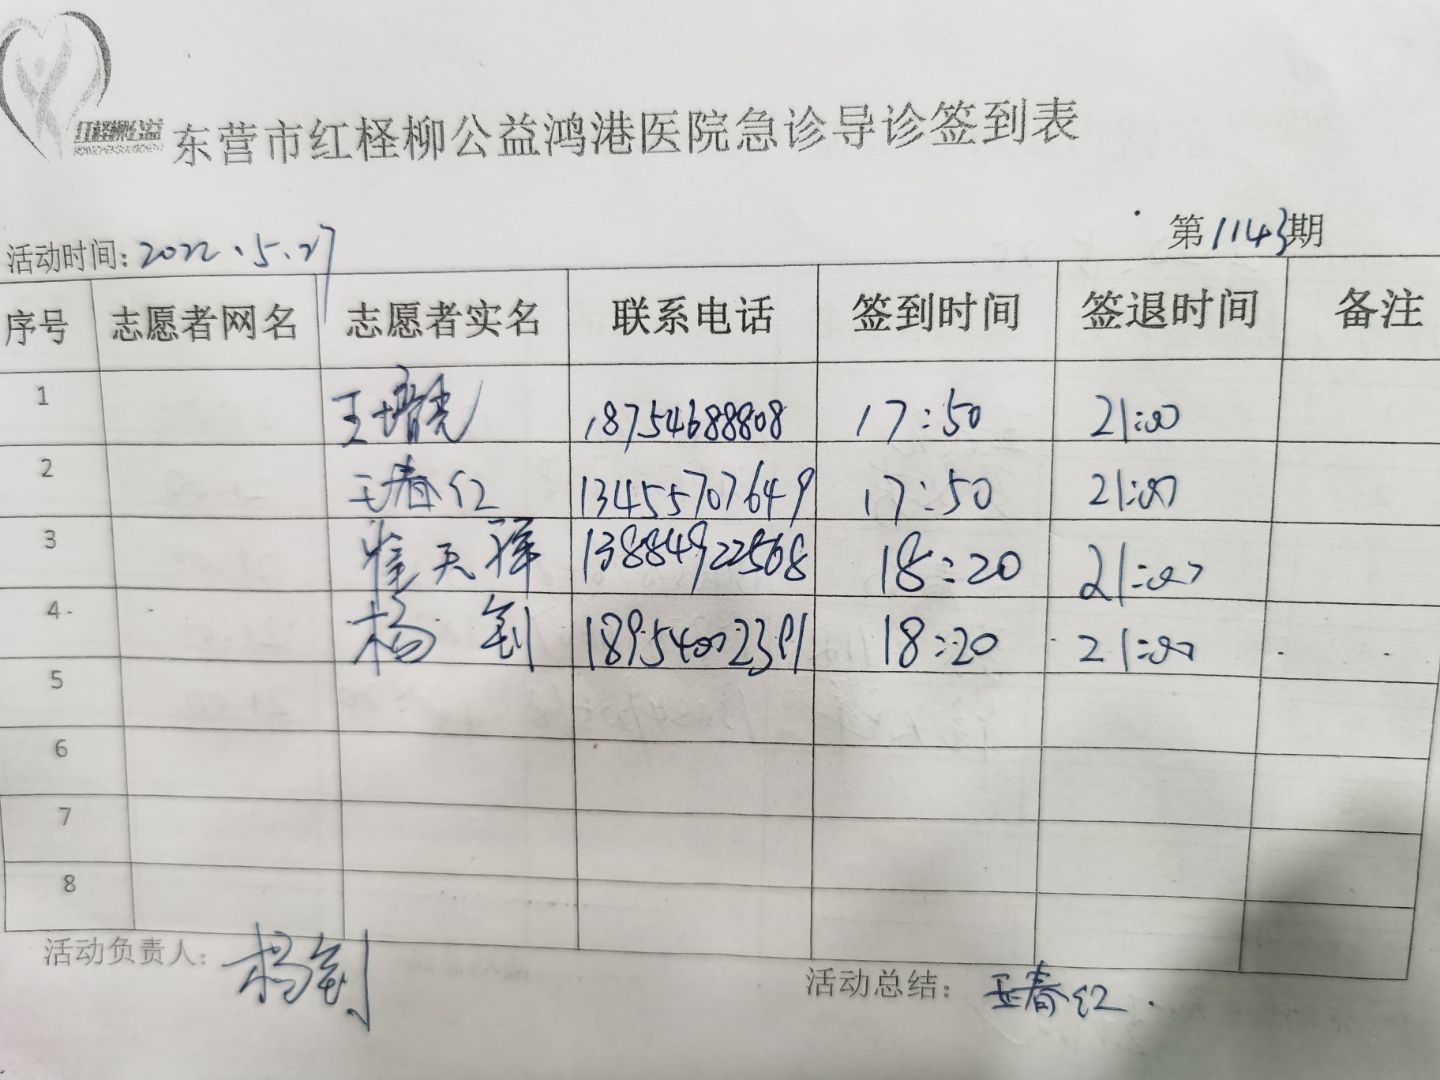 红柽柳公益
东营市红柽柳公益鸿港医院急诊导诊签到表
活动时间：2022.5.27 第1143期
序号 志愿者网名 志愿者实名 联系电话 签到时间 签退时间 备注
1 王增亮 18754688808 17:50 21:00
2 王春红 13455707649 17:50 21:00
3 崔天祥 13884922568 18:20 21:00
4 杨钊 18954002391 18:20 21:00
5
6
7
8
活动负责人：杨钊 活动总结：王春红